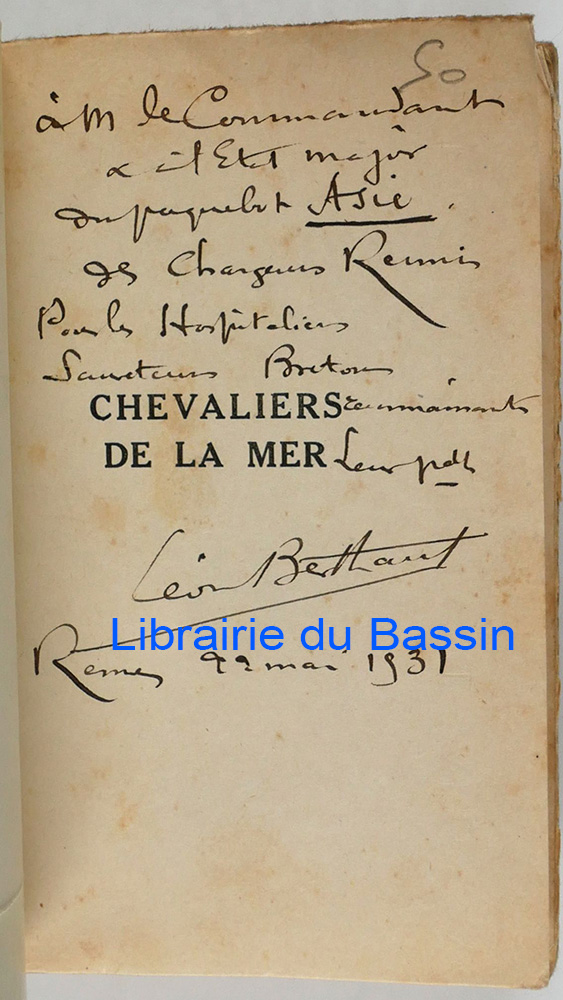 50
à M le Commandant
& à l'Etat major
du paquebot Asie.
des Chargeurs Reunis
Pour les Hospitaliers
Sauveteurs Bretons
CHEVALIERS reconnaissants
DE LA MER Leur pdt
Léon Berthaut
Librairie du Bassin
Rennes 22 mai 1931